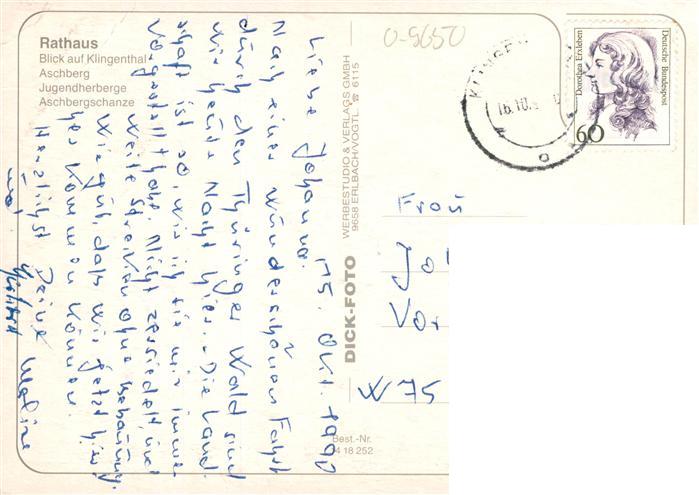 Rathaus
Blick auf Klingenthal
Aschberg
Jugendherberge
Aschbergschanze
15. Okt. 1990
Liebe Johanna.
Nach einer wunderschönen Fahrt
durch den Thüringer Wald sind
wir heute Nacht hier. Die Land-
schaft ist so, wie ich sie mir immer
vorgestellt habe. Nicht zersiedelt, und
weite Strecken ohne Bebauung.
Wie gut, daß wir jetzt hier
her kommen können.
Herzlichst Deine
DICK-FOTO
WERBESTUDIO & VERLAGS GMBH
9658 ERLBACH/VOGTL. ☎ 6115
Best.-Nr.
4 18 252
O-9650
KLINGEN
16.10.
Dorothea Erxleben
Deutsche Bundespost
60
Frau
Jo
Vor
W 75